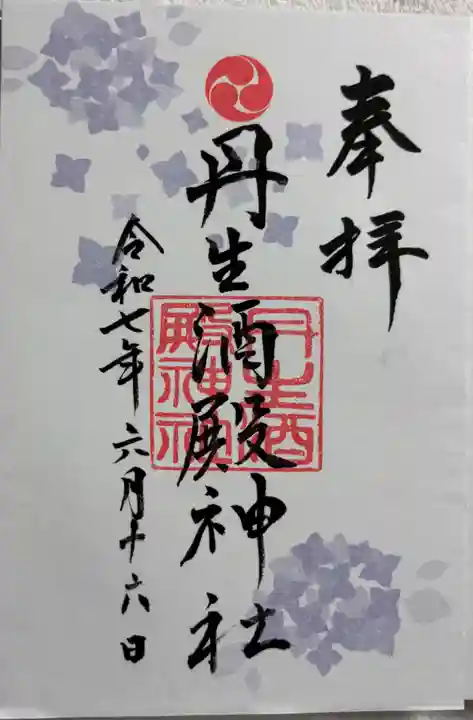 奉拝
丹生酒殿神社
丹生酒殿神社
令和七年六月十六日